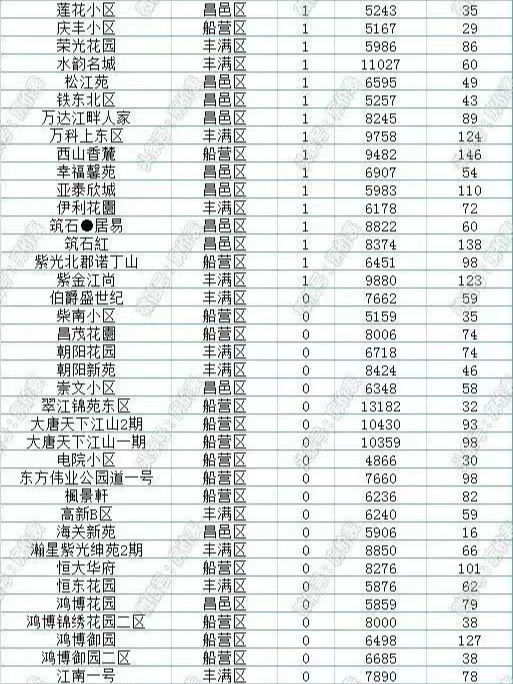 莲花小区 昌邑区 1 5243 35
庆丰小区 船营区 1 5167 29
荣光花园 丰满区 1 5986 86
水韵名城 丰满区 1 11027 60
松江苑 昌邑区 1 6595 49
铁东北区 昌邑区 1 5257 43
万达江畔人家 昌邑区 1 8245 89
万科上东区 丰满区 1 9758 124
西山香麓 船营区 1 9482 146
幸福馨苑 昌邑区 1 6907 54
亚泰欣城 昌邑区 1 5983 110
伊利花園 丰满区 1 6178 72
筑石●居易 昌邑区 1 8822 60
筑石紅 昌邑区 1 8374 138
紫光北郡诺丁山 船营区 1 6451 98
紫金江尚 丰满区 1 9880 123
伯爵盛世纪 丰满区 0 7662 59
柴南小区 船营区 0 5159 35
昌茂花園 船营区 0 8006 74
朝阳花园 丰满区 0 6718 74
朝阳新苑 丰满区 0 8424 46
崇文小区 昌邑区 0 6348 58
翠江锦苑东区 船营区 0 13182 32
大唐天下江山2期 船营区 0 10430 93
大唐天下江山一期 船营区 0 10359 98
电院小区 船营区 0 4866 30
东方伟业公园道一号 船营区 0 7660 98
楓景軒 船营区 0 6236 82
高新B区 丰满区 0 6240 59
海关新苑 昌邑区 0 5906 16
瀚星紫光绅苑2期 丰满区 0 8850 66
恒大华府 船营区 0 8276 101
恒东花园 丰满区 0 5876 62
鸿博花园 昌邑区 0 5859 79
鸿博锦绣花园二区 船营区 0 8000 38
鸿博御园 船营区 0 6498 127
鸿博御园二区 船营区 0 6685 38
江南一号 丰满区 0 7890 78